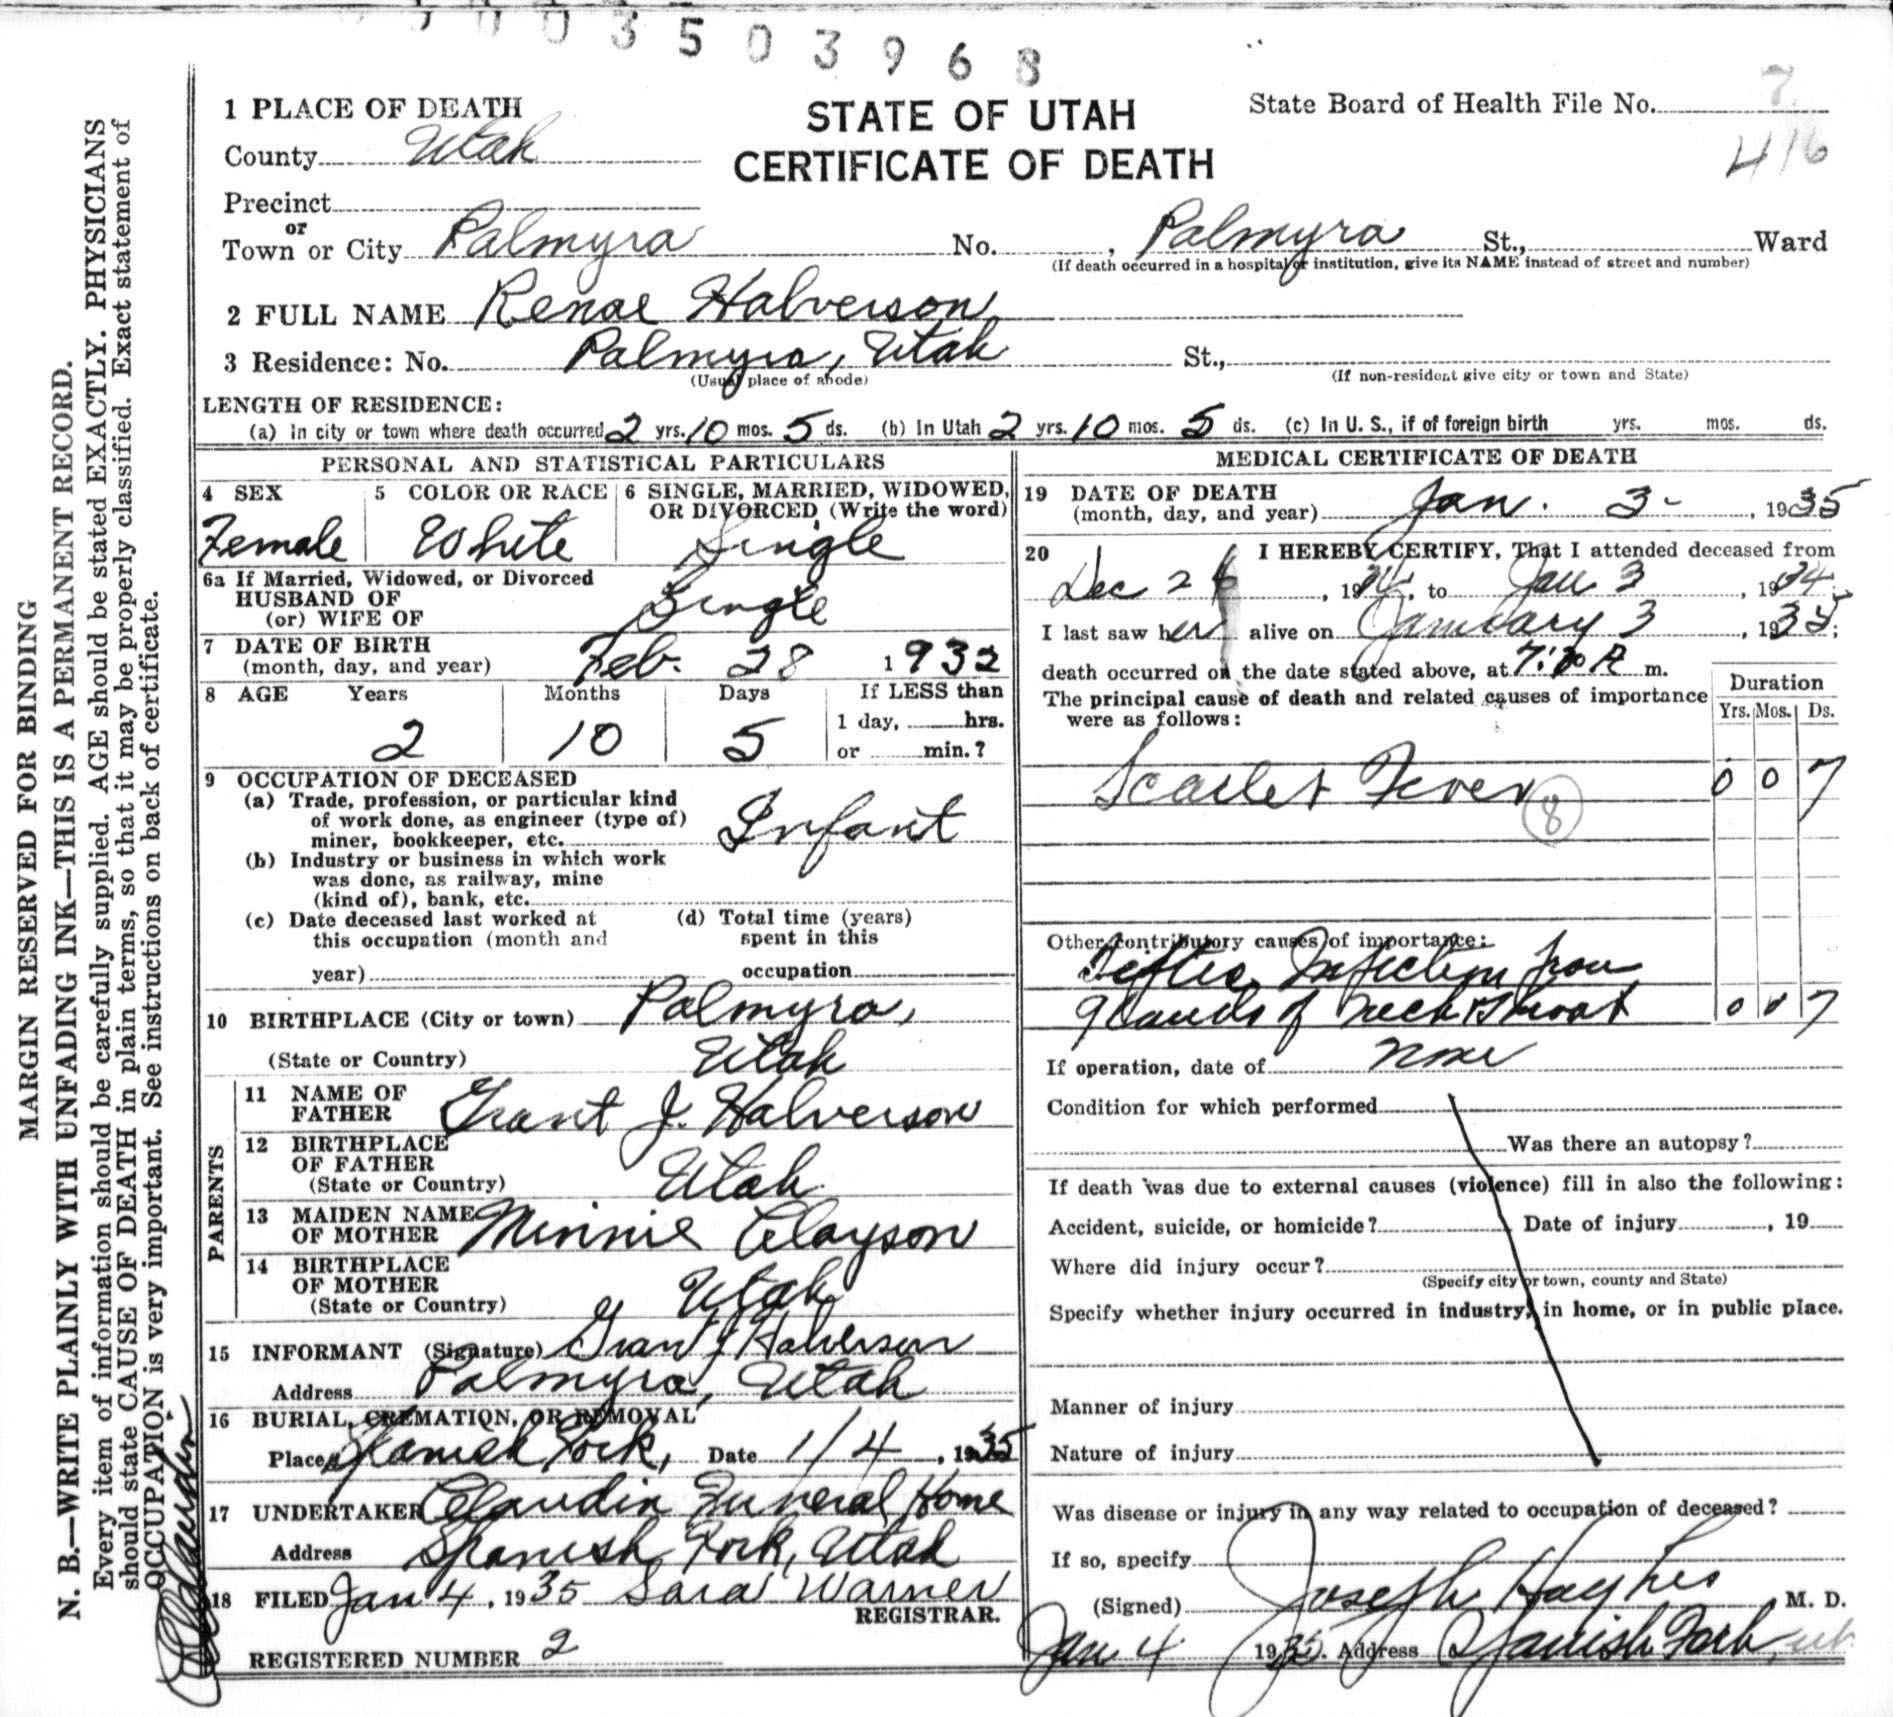 3 5 0 3 9 6 8
1 PLACE OF DEATH
STATE OF UTAH
CERTIFICATE OF DEATH
State Board of Health File No. 7
416
County Utah
Precinct
or
Town or City Palmyra No. , Palmyra St., Ward
(If death occurred in a hospital or institution, give its NAME instead of street and number)
2 FULL NAME Renae Halverson
3 Residence: No. Palmyra, Utah St.,
(Usual place of abode) (If non-resident give city or town and State)
LENGTH OF RESIDENCE:
(a) In city or town where death occurred 2 yrs. 10 mos. 5 ds. (b) In Utah 2 yrs. 10 mos. 5 ds. (c) In U. S., if of foreign birth yrs. mos. ds.
PERSONAL AND STATISTICAL PARTICULARS
4 SEX 5 COLOR OR RACE 6 SINGLE, MARRIED, WIDOWED,
OR DIVORCED, (Write the word)
Female White Single
6a If Married, Widowed, or Divorced
HUSBAND OF
(or) WIFE OF Single
7 DATE OF BIRTH
(month, day, and year) Feb. 28 1932
8 AGE Years Months Days If LESS than
2 10 5 1 day, hrs.
or min.?
9 OCCUPATION OF DECEASED
(a) Trade, profession, or particular kind
of work done, as engineer (type of)
miner, bookkeeper, etc. Infant
(b) Industry or business in which work
was done, as railway, mine
(kind of), bank, etc.
(c) Date deceased last worked at (d) Total time (years)
this occupation (month and spent in this
year) occupation
10 BIRTHPLACE (City or town) Palmyra,
(State or Country) Utah
PARENTS
11 NAME OF
FATHER Grant J. Halverson
12 BIRTHPLACE
OF FATHER
(State or Country) Utah
13 MAIDEN NAME
OF MOTHER Minnie Clayson
14 BIRTHPLACE
OF MOTHER
(State or Country) Utah
15 INFORMANT (Signature) Grant J Halverson
Address Palmyra, Utah
16 BURIAL, CREMATION, OR REMOVAL
Place Spanish Fork, Date 1/4, 1935
17 UNDERTAKER Claudin Funeral Home
Address Spanish Fork, Utah
18 FILED Jan 4, 1935 Sara Warner
REGISTRAR.
REGISTERED NUMBER 2
MEDICAL CERTIFICATE OF DEATH
19 DATE OF DEATH
(month, day, and year) Jan. 3- , 1935
20 I HEREBY CERTIFY, That I attended deceased from
Dec 26, 19 , to Jan 3, 1934
I last saw her alive on January 3, 1935;
death occurred on the date stated above, at m.
The principal cause of death and related causes of importance
were as follows:
Duration
Yrs. Mos. Ds.
Scarlet Fever 0 0 7
8
Other contributory causes of importance:
Infection from
glands of neck & throat 0 0 7
If operation, date of none
Condition for which performed
Was there an autopsy?
If death was due to external causes (violence) fill in also the following:
Accident, suicide, or homicide? Date of injury , 19
Where did injury occur?
(Specify city or town, county and State)
Specify whether injury occurred in industry, in home, or in public place.
Manner of injury
Nature of injury
Was disease or injury in any way related to occupation of deceased?
If so, specify
(Signed) Joseph Hughes M. D.
Jan 4 1935. Address Spanish Fork, Ut.
MARGIN RESERVED FOR BINDING
N. B.—WRITE PLAINLY WITH UNFADING INK—THIS IS A PERMANENT RECORD.
Every item of information should be carefully supplied. AGE should be stated EXACTLY. PHYSICIANS
should state CAUSE OF DEATH in plain terms, so that it may be properly classified. Exact statement of
OCCUPATION is very important. See instructions on back of certificate.